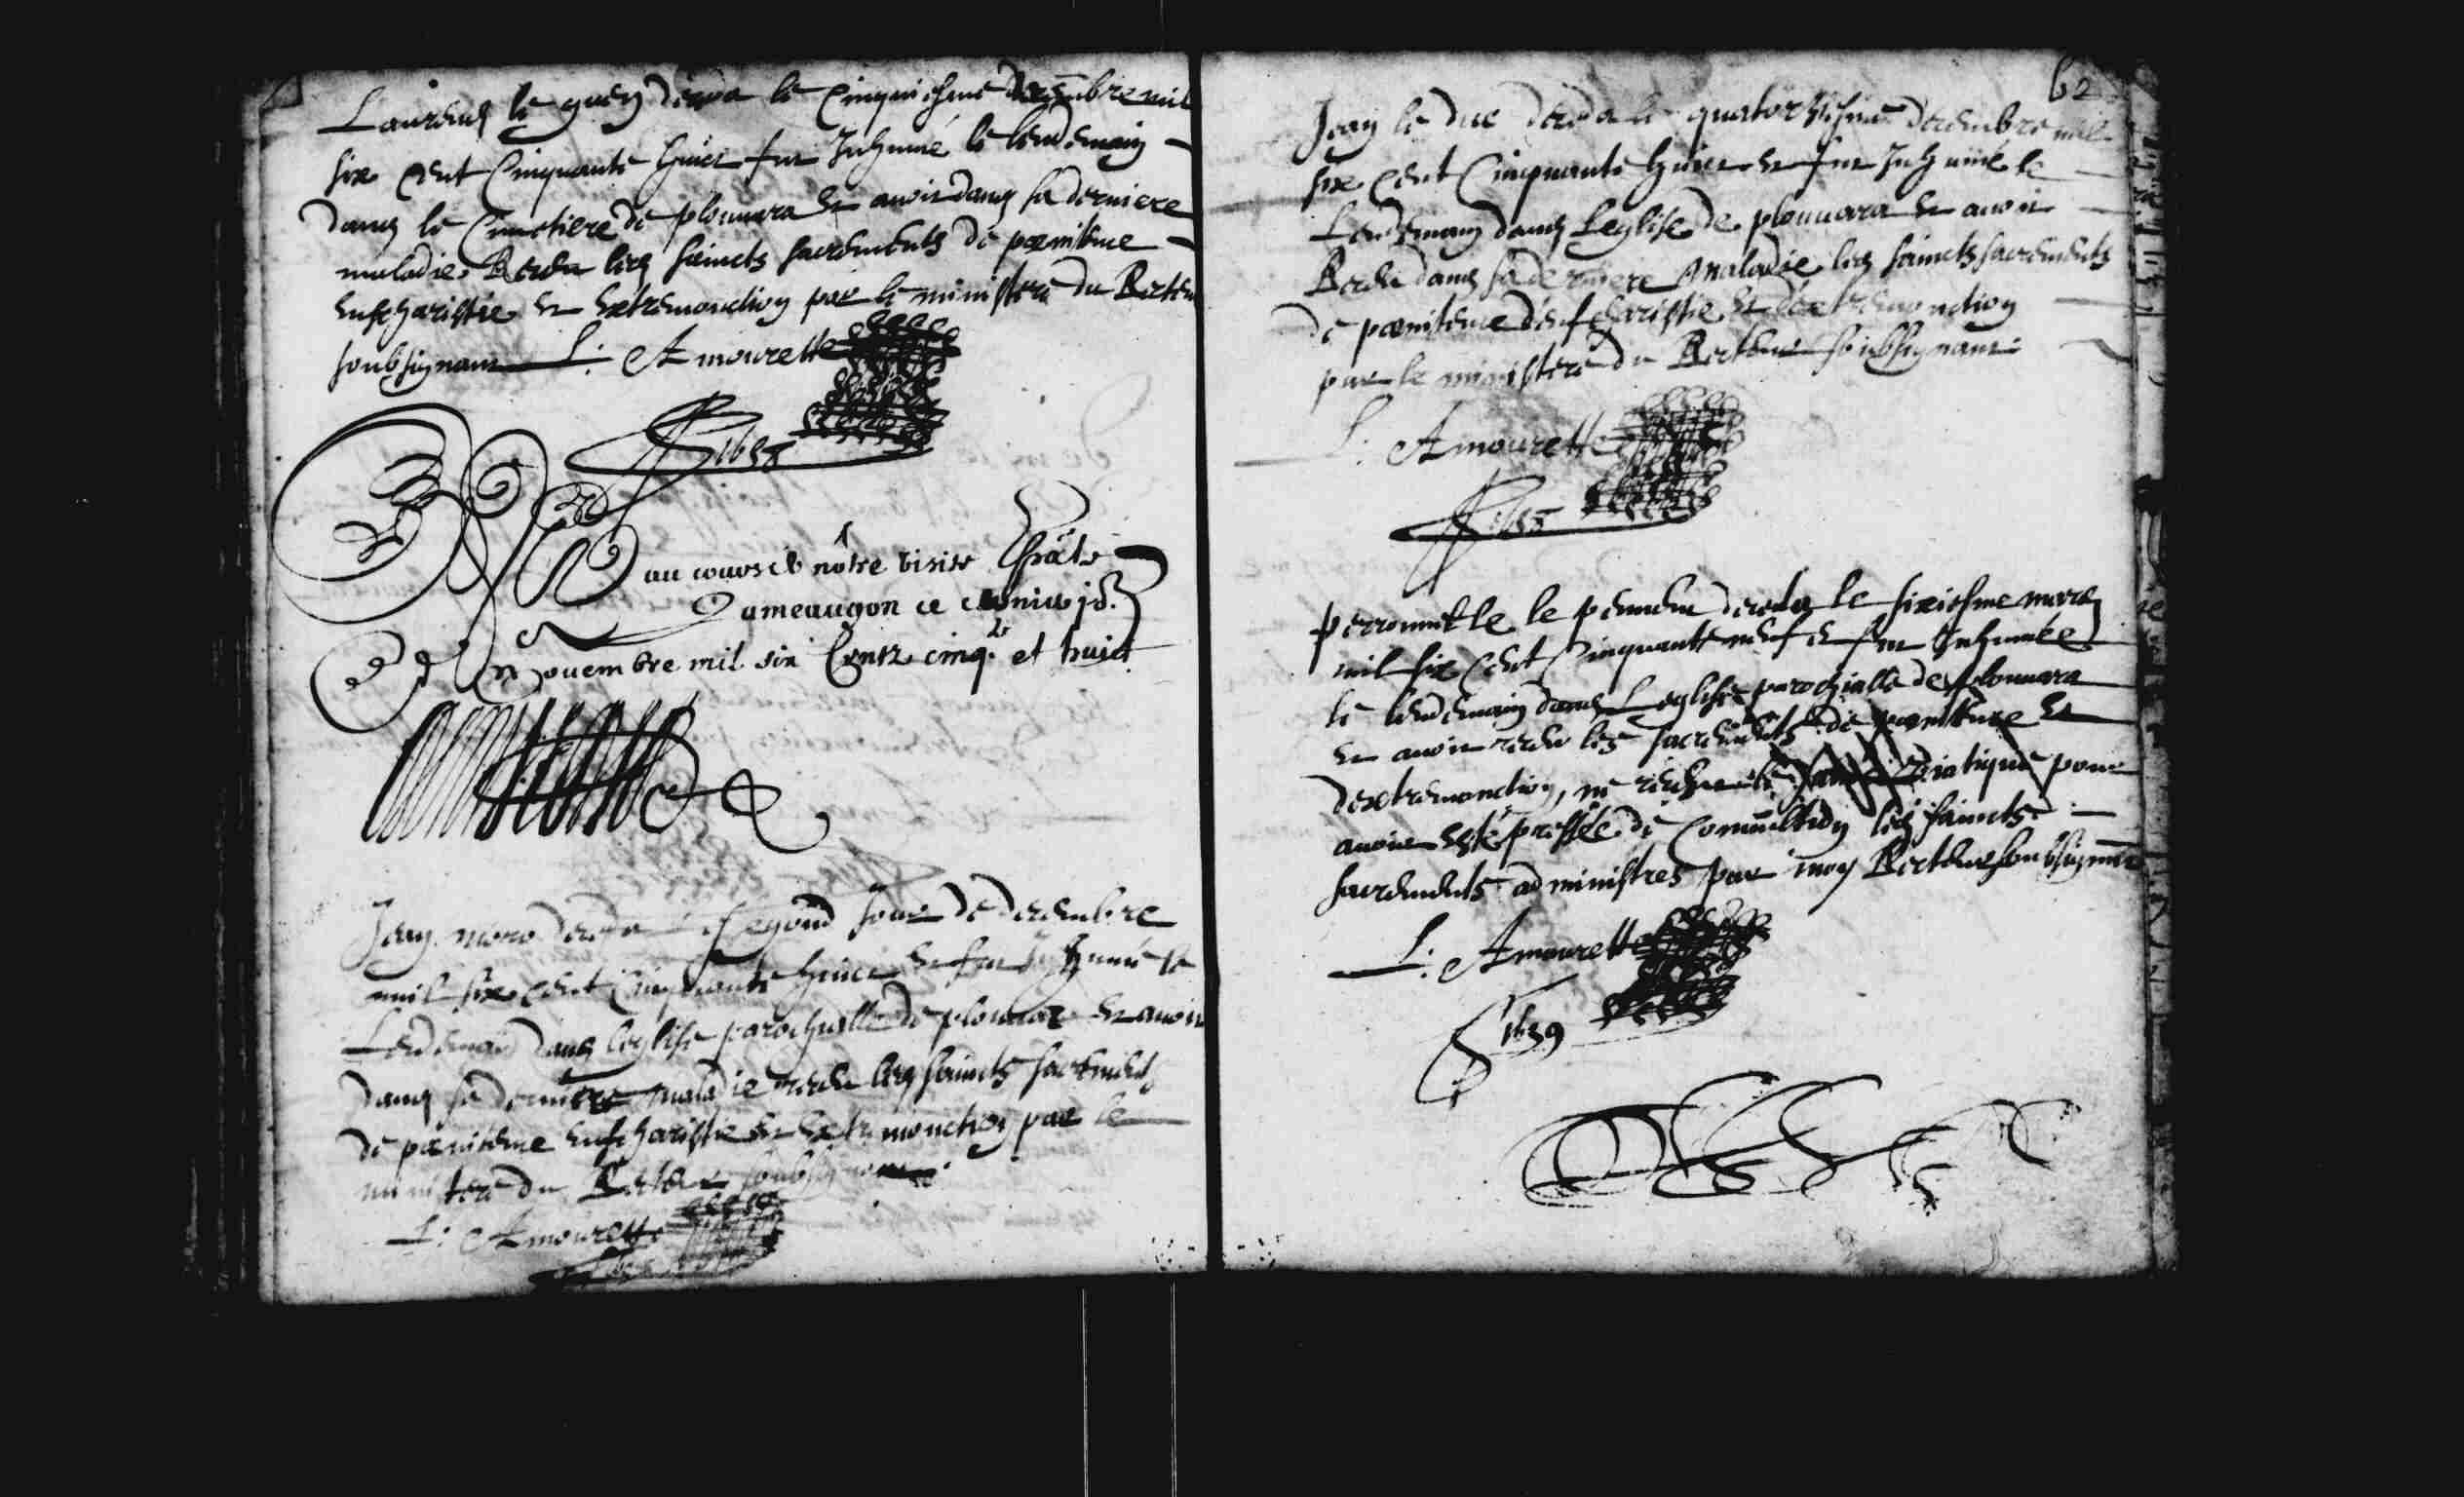 Laurens le guen deceda le Cinquiesme decembre mil
six cent Cinquante huict fut Inhumé le lendemain
dans le Cimetiere de plouuara et auoir dans sa derniere
maladie Receu les saincts sacrements de pœnitence
eufcharistie et extremonction par le ministere du Recteur
soubsignant L: Amourette
1658
Veu au cours de nôtre visite
ce
nouembre mil six Centz cinq.te et huict
Jan moro deceda le segond jour de decembre
mil six cent Cinquante huict et fut Inhumé le
Lendemain dans leglise parochialle de plouuara et auoir
dans sa derniere maladie receu les saincts sacrements
de pœnitence eufcharistie et extremonction par le
ministere du Recteur soubsignant
L: Amourette
62
Jan le duc deceda le quatorziesme decembre mil
six cent Cinquante huict et fut Inhumé le
Lendemain dans Leglise de plouuara et auoir
Receu dans sa derniere maladie les saincts sacrements
de pœnitence d'eufcharistie et d'extremonction
par le ministere du Recteur soubsignant
L: Amourette
1658
perronnelle le deceda le sixiesme mars
mil six cent Cinquante neuf et fut Inhumée
le lendemain dans Leglise parochialle de plouuara
et auoir receu les sacrements de pœnitence et
dextremonction, ne viatique pour
auoir esté pressée de les saincts
sacrements administres par moy Recteur soubsignant
L: Amourette
1659